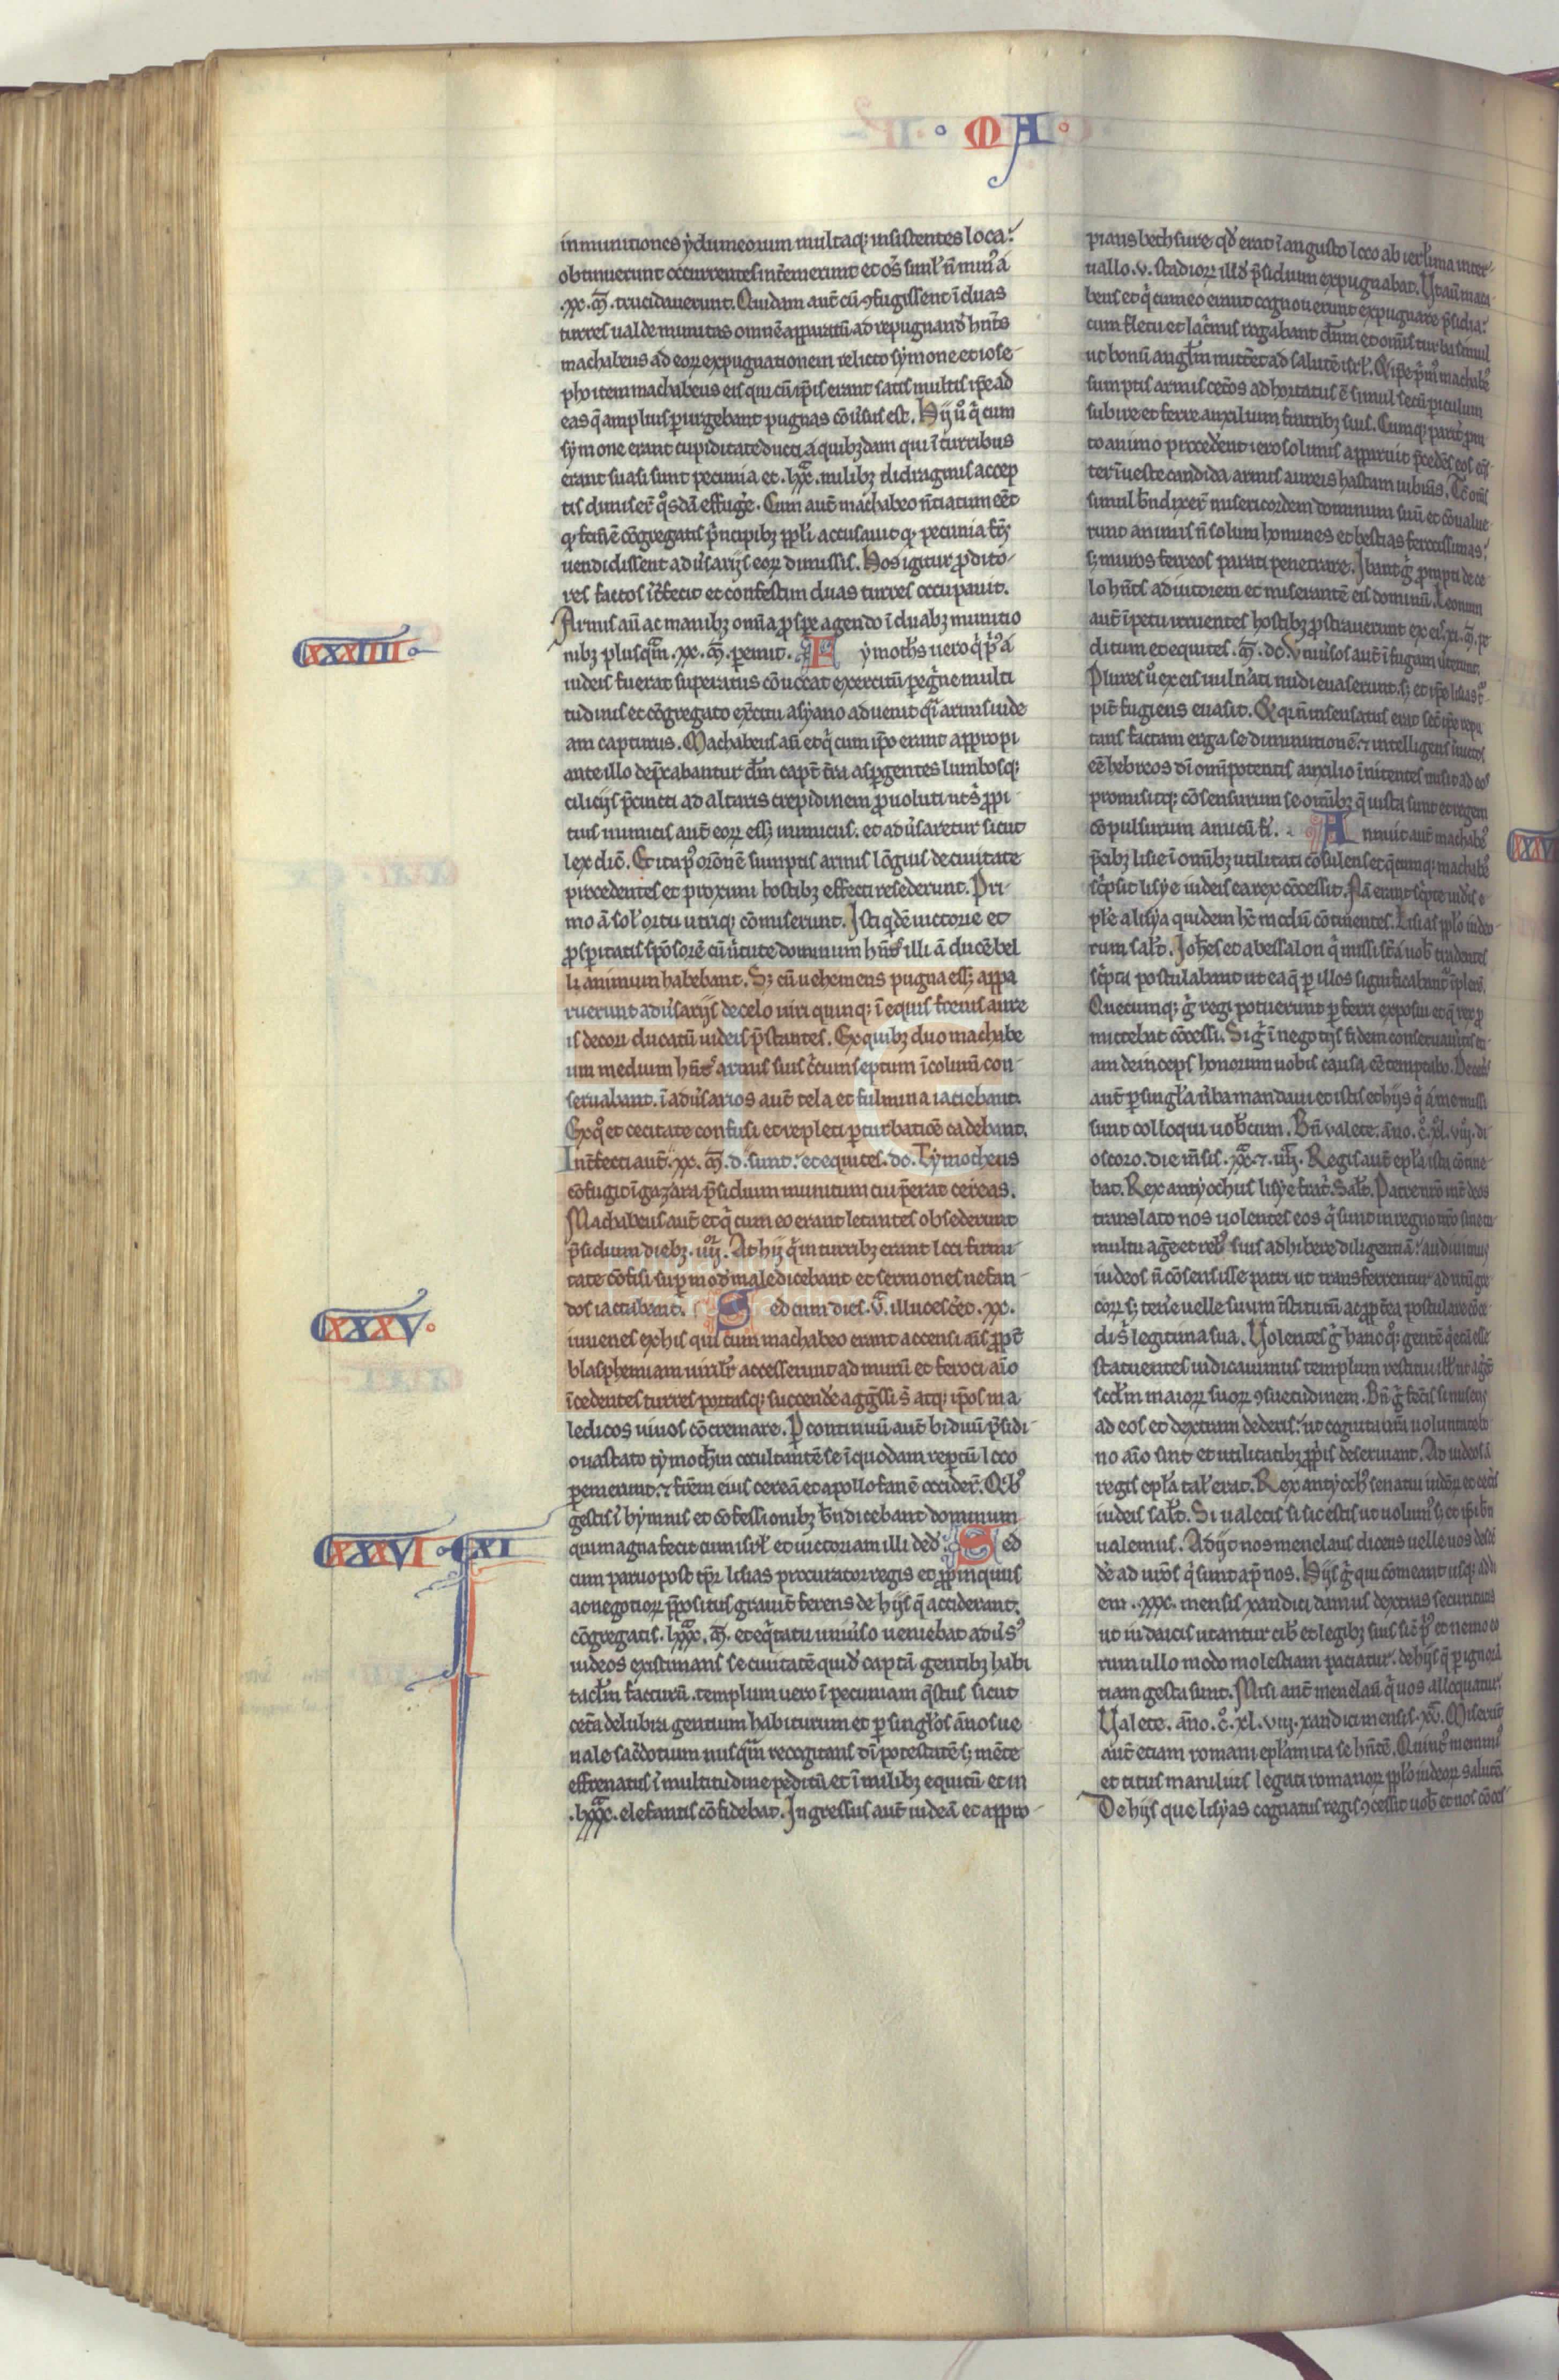 MA
inmunitiones ydumeorum multaq; insistentes loca:
obtinuerunt occurrentes int̄emerunt et oēs simul ñ min᾿ a
.xx. m̄. trucidauerunt. Quidam aut̄ cū ꝯfugissent ī duas
turres ualde munitas omnē apparatū ad repugnand᾿ hñtes
machabeus ad eoꝝ expugnationem relicto symone et iose-
pho item machabeus eis qui cū ip̄is erant satis multis ip̄e ad
eas q̄ amplius ꝑurgebant pugnas cōu̾sus est. Hij u̾o qͥ cum
symone erant cupiditate ducti a quibzdam qui ī turribus
erant suasi sunt pecunia et .lxx. milibz didragmis accep
tis dimiser̄t qͦsdā effuge̾. Cum aut̄ machabeo ñtiatum eēt
qͩ fc̄m ē cōgregatis pͥncipibz ppl̄i accusauit qͩ pecunia fr̄es
uendidissent adu̾sarijs eoꝝ dimissis. Hos igitur ꝓdito-
res factos īt̄fecit et confestim duas turres occupauit.
Armis aū ac manibz oīa ꝓspe̾ agendo ī duabz munitio
nibz plusqͣm .xx. m̄. ꝑemit. Tymoth̄s uero qͥ pͥus a
iudeis fuerat superatus cōuocat exercitū ꝑegͥne multi
tudinis et cōgregato exc̄itu asyano aduenit qͣsi armis iude
am capturus. Machabeus aū et qͥ cum ip̄o erant appropi
ante illo dep̄cabantur dn̄m caput t̄ra aspergentes lumbosq;
cilicijs p̄cincti ad altaris crepidinem ꝓuoluti ut s᾿ ꝓpi
tius inimicis aut̄ eoꝝ ess; inimicus. et adu̾saretur sicut
lex dic̄. Et ita p᾿ orōnē sumptis armis lōgius de ciuitate
procedentes et proximi hostibz effecti resederunt. Pri-
mo aū sol᾿ ortu utriq; cōmiserunt. Isti qͥdē uictorie et
ꝓsperitatis spōsorē cū u̾tute dominum hñtes illi aū ducē bel
li animum habebant. S; cū uehemens pugna ess; appa
ruerunt adu̾sarijs de celo uiri quinq; ī equis frenis aure
is decori ducatū iudeis p̄stantes. Ex quibz duo machabe
um medium hñtes armis suis cͥcumseptum īcolumē con-
seruabant. ī adu̾sarios aut̄ tela et fulmina iaciebant.
Ex qͦ et cecitate confusi et repleti ꝑturbatiōe cadebant.
Int̄fecti aut̄ .xx. m̄. d. sunt: et equites. dc. Tymotheus
cōfugit ī gazara p̄sidium munitum cui p̄erat cereas.
Machabeus aut̄ et qͥ cum eo erant letantes obsederunt
p̄sidium diebz .iiijͦʳ. At hij qͥ in turribz erant loci firmi
tate cōfisi supͣ mod᾿ maledicebant et sermones nefan-
dos iactabant. Sed cum dies .vͣ. illucesc̄et .xx.
iuuenes ex his qui cum machabeo erant accensi aīs ꝓpt̄
blasphemiam uiril᾿r accesserunt ad murū et feroci aīo
īcedentes turres portasq; succende̾ aggͥssi s̄ atq; ip̄os ma
ledicos uiuos cōcremare. Ꝑ continuū aut̄ biduū p̄sidi-
o uastato tymoth̄m occultantē se ī quodam reꝑtū loco
ꝑemerunt. ⁊ fr̄em eius cereā et apollofanē occider̄. Qͥb᾿
gestis ī hymnis et cōfessionibz bn̄dicebant dominum
qui magna fecit cum isrl᾿ et uictoriam illi ded᾿. Sed
cum paruo post tꝑr lisias procurator regis et ꝓpinquus
ac negotioꝝ p̄positus grauit̄ ferens de hijs q̄ acciderant.
cōgregatis .lxxxͣ. m̄. et eqͥtatu uniu̾so ueniebat adu̾s᾿
iudeos existimans se ciuitatē quid᾿ captā gentibz habi
tacl᾿m facturū. templum uero ī pecuniam qͣstus sicut
cet̄a delubra gentium habiturum et ꝑ singl᾿os ānos ue
nale sac̄dotium nusqͣm recogitans dī potestatē s; mēte
effrenatus ī multitudine peditū et ī milibz equitū et in
.lxxxͣ. elefantis cōfidebat. Ingressus aut̄ iudeā et appro-
pians bethsure qd᾿ erat ī angusto loco ab ierl᾿ima inter-
uallo .v. stadioꝝ illd᾿ p̄sidium expugnabat. Ut aū maca-
beus et qͥ cum eo erant cognouerunt expugnare p̄sidia:
cum fletu et lacͥmis rogabant dn̄m et omīs turba simul
ut bonū angl᾿m mitt̄et ad salutē isrl᾿. Et ip̄e pͥm᾿ machabe᾿
sumptis armis cet̄os adhortatus ē simul secū ꝑiculum
subire et ferre auxilium fratribz suis. Cumq; parit̄ pm
to animo procederent ierosolimis apparuit p̄cedēs eos eq̄s
ter ī ueste candida armis aureis hastam uibrās. Tc̄ om̄s
simul bn̄dixer̄t misericordem dominum suū et cōualue
runt animis ñ solum homines et bestias ferocissimas:
s; muros ferreos parati penetrare. Ibant gͥ prompti de ce
lo hñtes adiutorem et miserantē eis dominū. Leonum
aut̄ īpetu irruentes hostibz ꝓstrauerunt ex eis .xi. m̄. pe
ditum et equites. m̄. dc. Uniu̾sos aut̄ ī fugam u̾terunt.
Plures u̾o ex eis uuln̾ati nudi euaserunt. s; et ip̄e lisias t᾿-
pit̄ fugiens euasit. Et qͥ ñ insensatus erat sec̄ ip̄e repu
tans factam erga se diminutionē. ⁊ intelligens īuictos
eē hebreos dī omīpotentis auxilio īnitentes misit ad eos
promisitq; cōsensurum se omībz q̄ iusta sunt et regem
cōpulsurum amicū fi᾿. Annuit aut̄ machabe᾿
p̄cibz lisie ī omībz utilitati cōsulens et q̄cumq; machabe᾿
sc̄psit lisye iudeis ea rex cōcessit. Nā erant sc̄pte iudeis e
pl᾿e a lisya quidem hc̄ modū cōtinentes. Lisias ppl᾿o iudeo-
rum sal᾿t. Ioh̄es et abessalon qͥ missi fuerant a uob᾿ tradentes
sc̄pta postulabant ut ea q̄ ꝑ illos significabant᾿ īplerē.
Quecumq; gͥ regi potuerunt ꝑferri exposui et q̄ res ꝑ
mittebat cōcessi. Si gͥ ī negotijs fidem conseruau̾itis et-
iam deinceps bonorum uobis causa eē temptabo. De cet̄is
aut̄ ꝑ singl᾿a u̾ba mandaui et istis et hijs qͥ a me missi
sunt colloqui uob᾿cum. Bn̄ ualete. āno .cͦ. xl. viij. di
oscoro. die m̄sis .xxͣ. ⁊ .iiij. Regis aut̄ epl᾿a ista cōtine-
bat. Rex antyochus lisye fratͥ. Sal᾿t. Patre nr̄o int̄ deos
translato nos uolentes eos qͥ sunt in regno nr̄o sine tu-
multu age̾ et reb᾿ suis adhibere diligentiā: audiuimus
iudeos ñ cōsensisse patri ut transferrentur ad ritū gre
coꝝ. s; tene̾ uelle suum īstitutū ac ꝓpt̄ea postulare cōce
di s᾿ legitima sua. Uolentes gͥ hanc qͦq; gentē qͥetā esse
statuentes iudicauimus templum restitui ill᾿ ut age̾t
scd᾿m maioꝝ suoꝝ ꝯsuetudinem. Bn̄ gͥ fec̄is si miseris
ad eos et dextram dederis: ut cognita nr̄a uoluntate bo
no aīo sint et utilitatibz ꝓpͥis deseruiant. Ad iudeos aū
regis epl᾿a tal᾿ erat. Rex antyoch᾿ senatui iudeoꝝ et cet̄is
iudeis sal᾿t. Si ualetis si sic estis ut uolum᾿. s; et ip̄i bn̄
ualemus. Adijt nos menelaus dicens uelle uos desce
de̾ ad uros qͥ sunt ap᾿ nos. Hijs gͥ qui cōmeant usq; ad di
em .xxx. mensis xandici damus dextras securitatis
ut iudaicis utantur cib᾿ et legibz suis sic᾿ pͥ᾿ et nemo eo
rum ullo modo molestiam paciatur. de hijs q̄ ꝑ ignorā
tiam gesta sunt. Misi aut̄ menelaū qͥ uos alloquatur.
Ualete. āno .cͦ. xl. viij. xandici mensis .xvͣ. Miserūt
aut̄ etiam romani epl᾿am ita se hñtē. Quint᾿ memmi᾿
et titus manilius legati romanoꝝ ppl᾿o iudeoꝝ salutē
De hijs que lisyas cognatus regis ꝯcessit uob᾿ et nos cōces
XXXIIII
XXXV
XXXVI XI